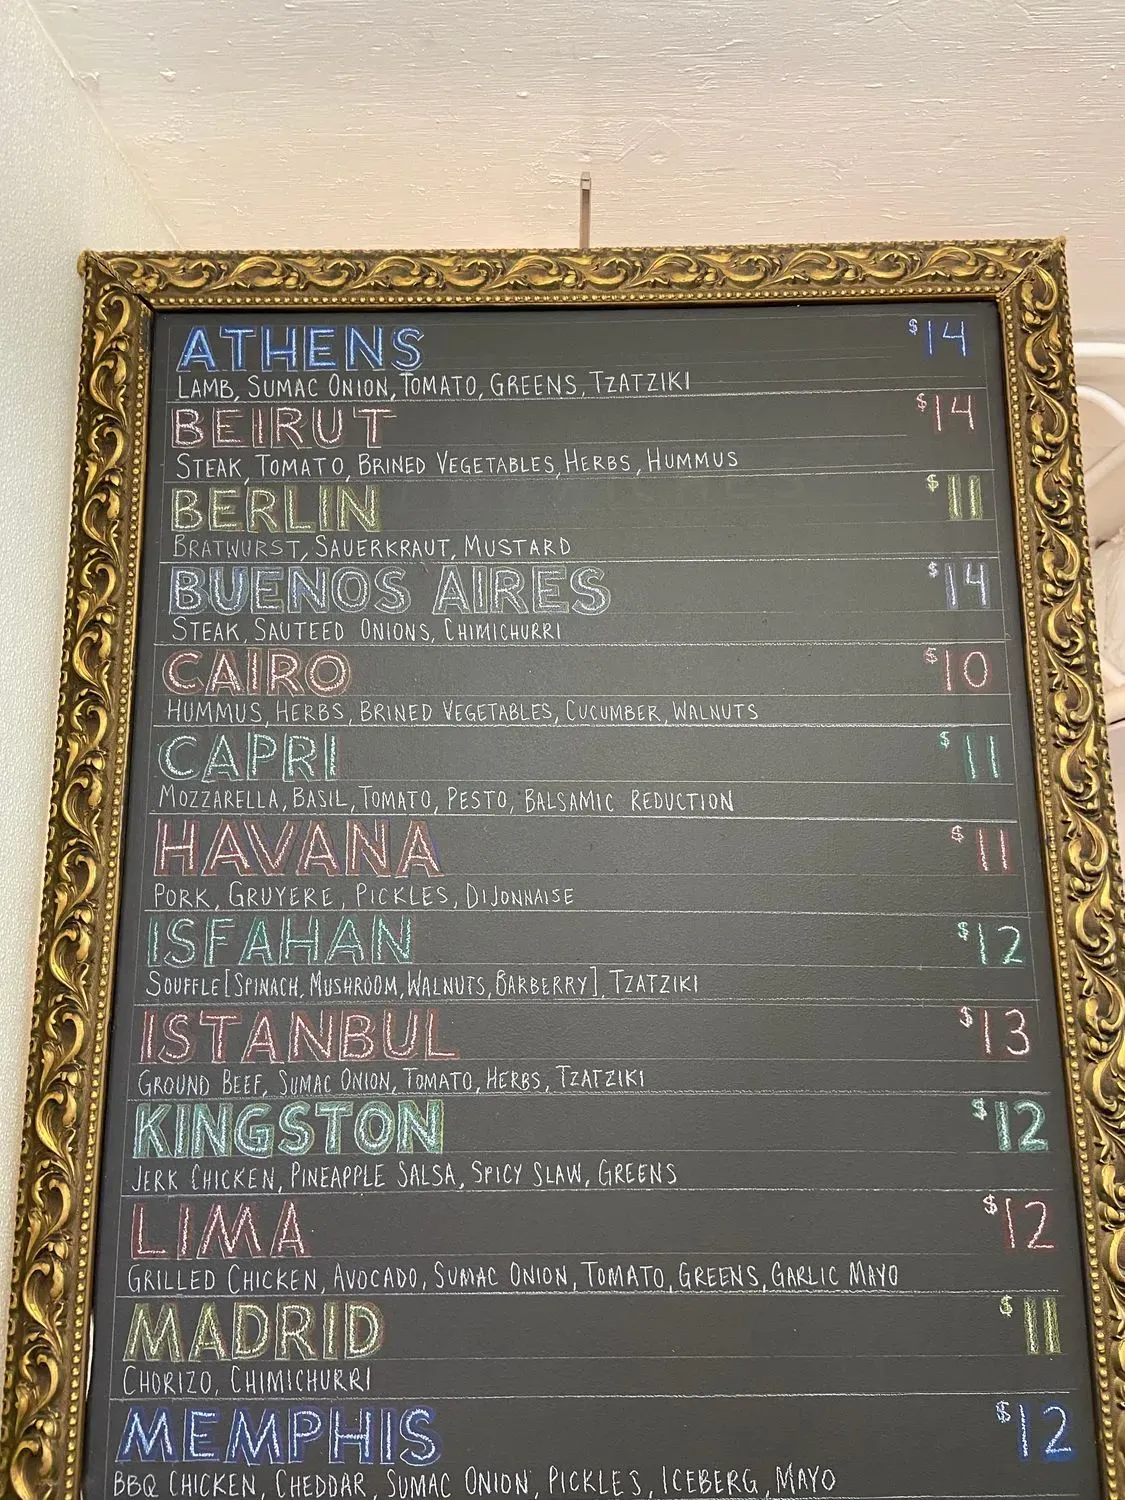 ATHENS $14
LAMB, SUMAC ONION, TOMATO, GREENS, TZATZIKI
BEIRUT $14
STEAK, TOMATO, BRINED VEGETABLES, HERBS, HUMMUS
BERLIN $11
BRATWURST, SAUERKRAUT, MUSTARD
BUENOS AIRES $14
STEAK, SAUTEED ONIONS, CHIMICHURRI
CAIRO $10
HUMMUS, HERBS, BRINED VEGETABLES, CUCUMBER, WALNUTS
CAPRI $11
MOZZARELLA, BASIL, TOMATO, PESTO, BALSAMIC REDUCTION
HAVANA $11
PORK, GRUYERE, PICKLES, DIJONNAISE
ISFAHAN $12
SOUFFLE [SPINACH, MUSHROOM, WALNUTS, BARBERRY], TZATZIKI
ISTANBUL $13
GROUND BEEF, SUMAC ONION, TOMATO, HERBS, TZATZIKI
KINGSTON $12
JERK CHICKEN, PINEAPPLE SALSA, SPICY SLAW, GREENS
LIMA $12
GRILLED CHICKEN, AVOCADO, SUMAC ONION, TOMATO, GREENS, GARLIC MAYO
MADRID $11
CHORIZO, CHIMICHURRI
MEMPHIS $12
BBQ CHICKEN, CHEDDAR, SUMAC ONION, PICKLES, ICEBERG, MAYO